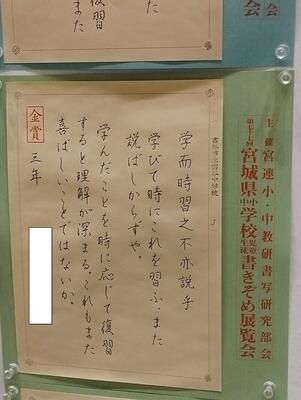 会
会
た
復習
また
主催 宮連小・中教研書写研究部会
宮城県小中学校児童生徒書きぞめ展覧会
学而時習之不亦説乎
学びて時にこれを習ふ、また
説ばしからずや。
学んだことを時に応じて復習
すると理解が深まる。これもまた
喜ばしいことではないか。
金賞
三年